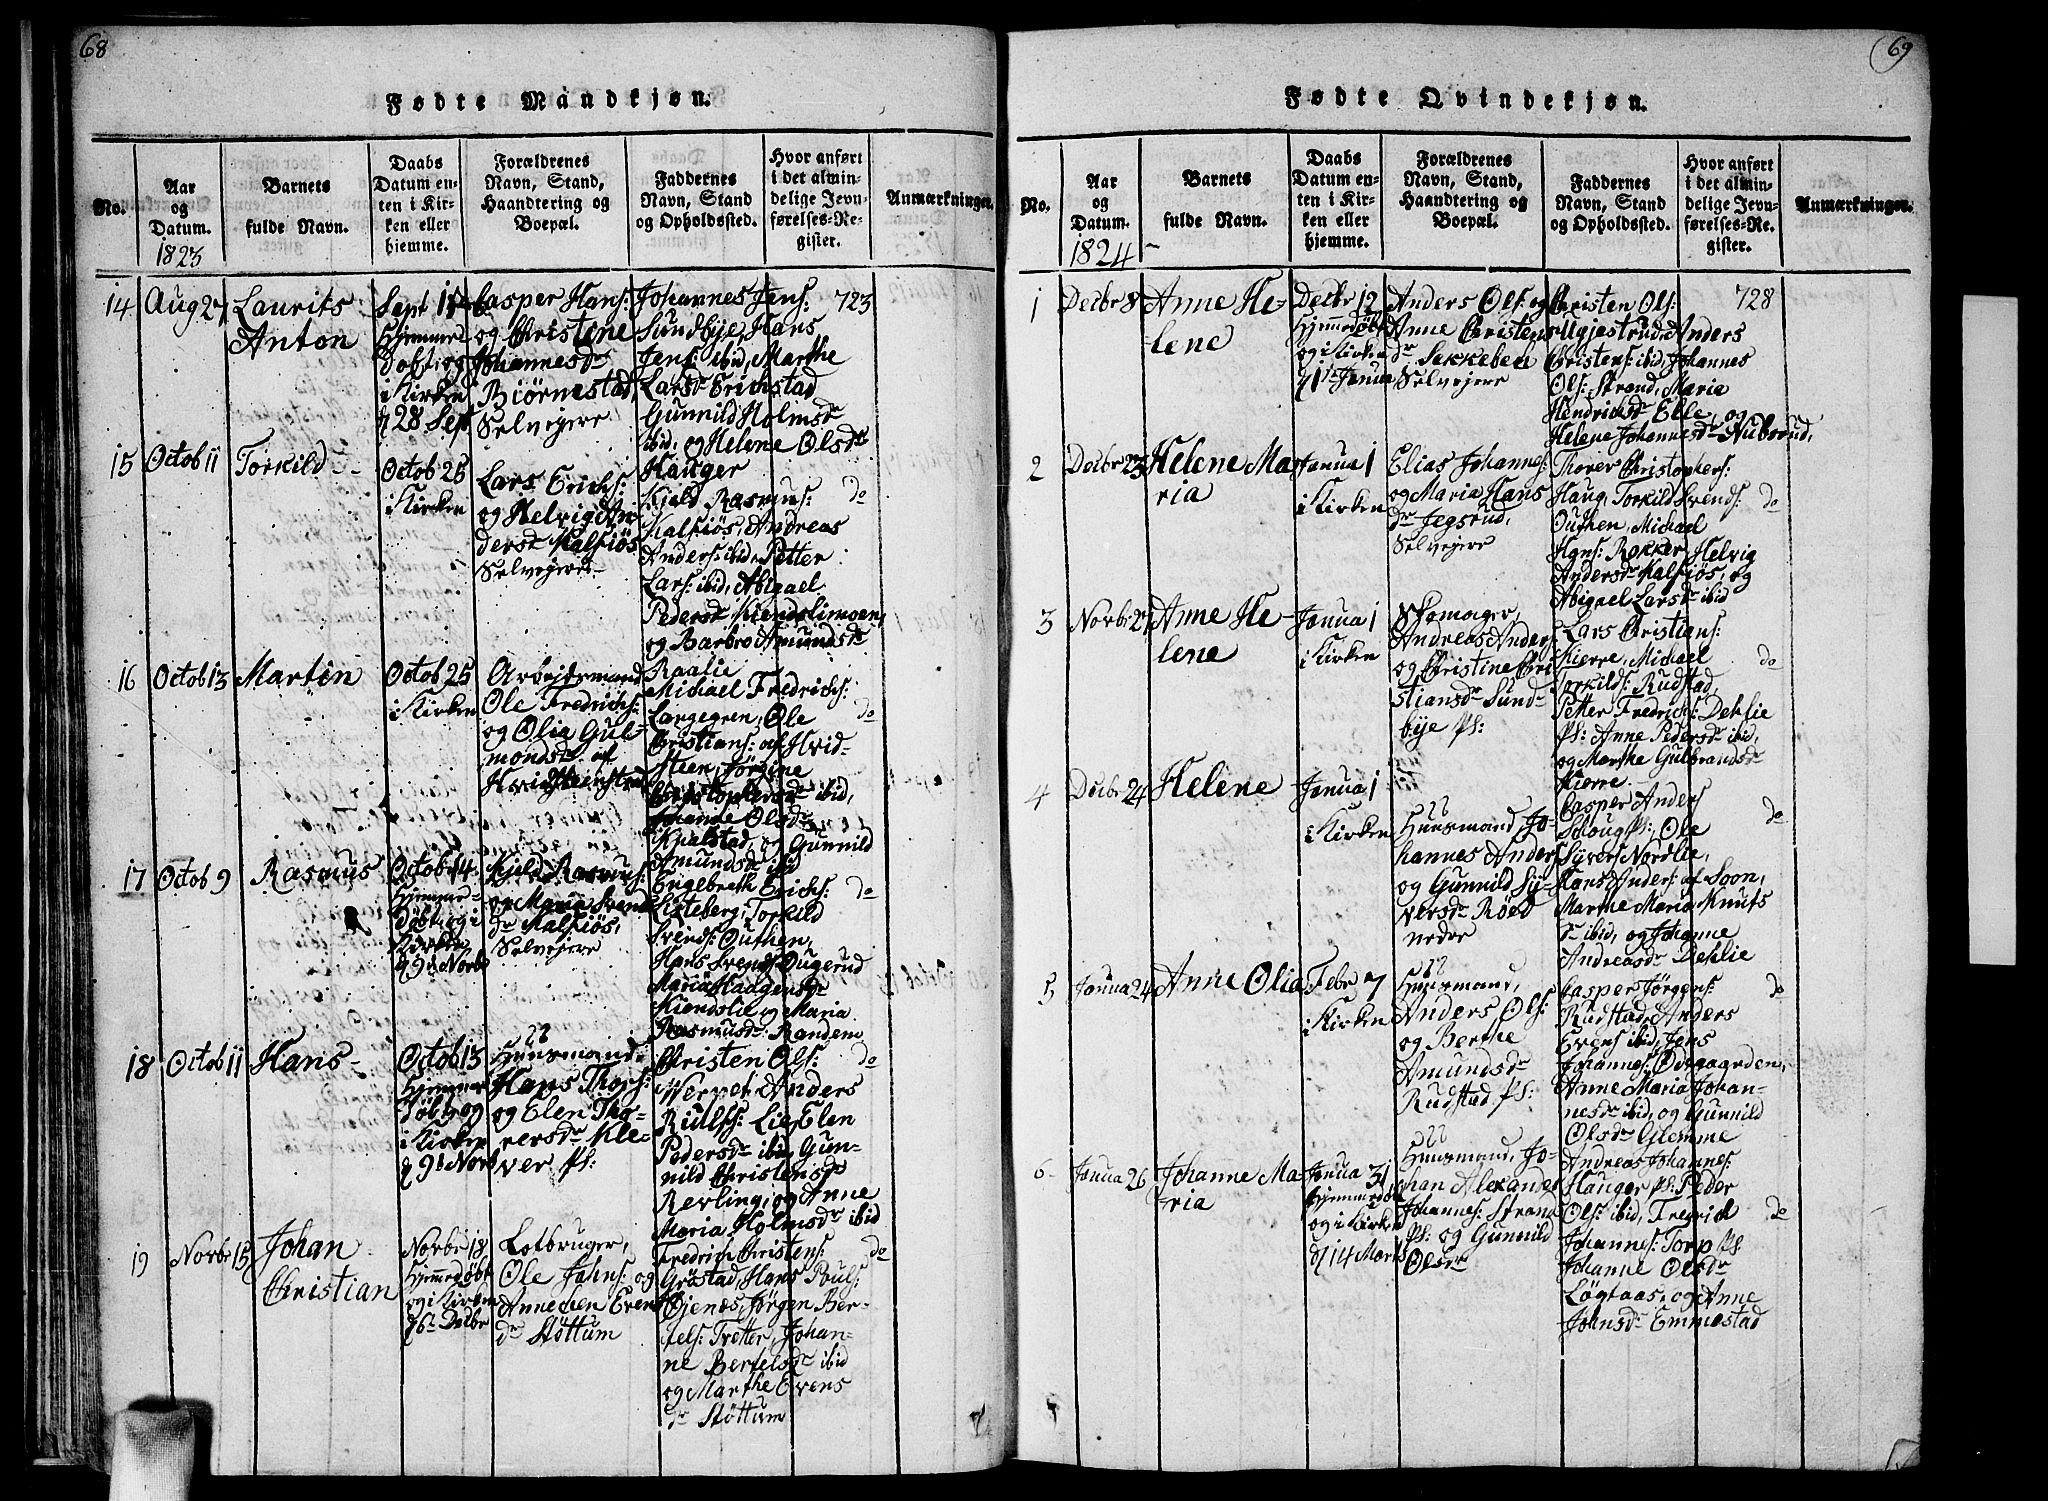 68
Fødte Mandkjøn.
No.
Aar
og
Datum.
1823
Barnets
fulde Navn.
Daabs
Datum en-
ten i Kir-
ken eller
hjemme.
Forældrenes
Navn, Stand,
Haandtering og
Boepæl.
Faddernes
Navn, Stand
og Opholdssted.
Hvor anført
i det almin-
delige Jevn-
førelses-Re-
gister.
Anmærkninger.
14
Aug 27
Laurits
Anton
Sept
Hjemme-
Døbt, og
i Kirken
28 Sept
Casper Hans:
og Christine
Johannesdr
Biörnestad,
Selvejere
Johannes Jens:
Sundbye, Hans
Jens: ibid, Marthe
Larsdr Erichstad
Gunnild Holmsdr
ibid, og Helene Olsdr
Hauger
723
15
Octob 11
Torkild
Octob 25
i Kirken
Lars Erichs:
og Helvig An-
dersdr Kalsiös
Selvejere
Kield Rasmus:
Kalsiös, Andreas
Anders: ibid, Petter
Lars: ibid, Abigael
Pedersdr Kiendslimoen,
og Barbro Amundsdr
Raalie
do
16
Octob 13
Martin
Octob 25
i Kirken
Arbejdsmand
Ole Fredrichs:
og Olia Gul-
mondsdr af
Michael Fredrichs:
Largegren, Ole
Christians: af Hvid-
steen, Jørgine
Christophersdr ibid,
Johanne Olsdr
Kjalstad, og Gunnild
Amundsdr ibid
do
17
Octob 9
Rasmus
Octob 14
Hjemme-
Døbt, og i
Kirken
9de Novbr
Kjeld Rasmus:
og Maria Svends
dr Kalsiös,
Selvejere
Engebreth Erichs:
Listeberg, Torkild
Svends: Outhen,
Hans Svends: Dugerud
Maria Haagensdr
Kiendslie og Maria
Rasmusdr Randem
do
18
Octob 11
Hans
Octob 13
Hjemme-
Døbt, og
i Kirken
9de Novb
Huusmand
Hans Thors:
og Elen Tho-
rersdr Kle-
ver Pl:
Christen Ols:
Werpet, Anders
Rulfs: Lie, Elen
Pedersdr ibid, Gun-
nild Christensdr
Revling, og Anne
Maria Holmsdr ibid
do
19
Novbr 15
Johan
Christian
Novbr 18
Hjemmedøbt
og i Kirken
6te Decbr
Lotbruger,
Ole Johns: og
Annechen Evens
dr Støttum
Fredrich Christens:
Gröstad, Hans Pouls:
Gjenes, Jørgen Ber-
tels: Tretter, Johan-
ne Bertelsdr ibid
og Marthe Evens
dr Støttum
do
69
Fødte Qvindekjøn.
No.
Aar
og
Datum.
1824
Barnets
fulde Navn.
Daabs
Datum en-
ten i Kir-
ken eller
hjemme.
Forældrenes
Navn, Stand,
Haandtering og
Boepæl.
Faddernes
Navn, Stand
og Opholdssted.
Hvor anført
i det almin-
delige Jevn-
førelses-Re-
gister.
Anmærkninger.
1
Decbr 8
Anne He-
lene
Decbr 12
Hjemmedøbt
og i Kirken
1ste Janua
Anders Ols: og
Anne Christens
dr Sekkeben
Selvejere
Christen Ols:
Ugjestrud, Anders
Christens: ibid, Johannes
Ols: Strand, Maria
Hendrichsdr Elle, og
Helene Johannesdr Nubrud,
728
2
Decbr 23
Helene Ma-
ria
Janua 1
i Kirken
Elias Johannes:
og Maria Hans
dr Jegsrud,
Selvejere
Thorer Christophers:
Haug, Torkild Svends:
Outhen, Michael
Hans: Rokker, Helvig
Andersdr Kalsiös, og
Abigael Larsdr ibid
do
3
Anne He-
lene
Janua 1
i Kirken
Skomager,
Andreas Anders:
og Christine Chri-
stiansdr Sund-
bye Pl:
Lars Christians:
Kierre, Michael
Torkilds: Rudstad,
Petter Fredrichs: Dehlie
Pl: Anne Pedersdr ibid,
og Marthe Gulbrandsdr
Kierre
do
4
Decbr 24
Helene
Janua 1
i Kirken
Huusmand Jo-
hannes Anders
og Gunnild Sy-
versdr Röed
nedre
Casper Anders
Skoug Pl:, Ole
Syvers: Nordlie,
Hans Anders: af Soon,
Marme Maria Knuts
dr ibid, og Johanne
Andreasdr Dehlie
do
5
Janua 24
Anne Olia
Febr 7
i Kirken
Huusmand,
Anders Ols:
og Berthe
Amundsdr
Rudstad Pl:
Casper Jørgens:
Rudstad, Anders
Evens: ibid, Jens
Johannes: Ödegaarden,
Anne Maria Johan-
nesdr ibid, og Gunnild
Olsdr Glemme
do
6
Janua 26
Johanne Ma-
ria
Janua 31
Hjemmedøbt
og i Kirken
d 14 Marts
Huusmand, Jo-
han Alexander
Johannes: Strand
Pl: og Gunnild
Olsdr
Andreas Johannes:
Hauger Pl: Peder
Ols: ibid, Fredrich
Johannes: Torp Pl:
Johanne Olsdr
Løgtaas, og Anne
Johnsdr Emmestad
do